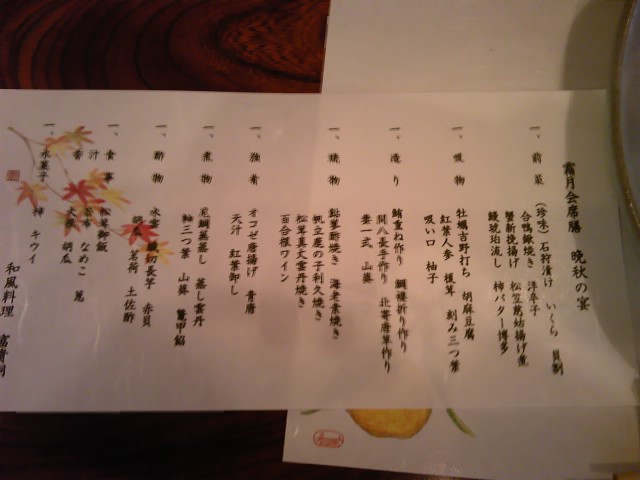 霜月会席膳　晩秋の宴
一、前菜　（珍味）石狩漬け　いくら　貝割
合鴨鍬焼き　洋辛子
蟹新挽揚げ　松笠慈姑揚げ煮
鰻琥珀流し　柿バター博多
一、吸物　牡蠣吉野打ち　胡麻豆腐
紅葉人参　榎茸　刻み三つ葉
吸い口　柚子
一、造り　鮪重ね作り　鯛
間八長手作り　北寄唐草作り
妻一式　山葵
一、焼物　海老素焼き
帆立鹿の子利久焼き
松茸真丈雲丹焼き
百合根ワイン
一、強肴　オコゼ唐揚げ　青唐
天汁　紅葉卸し
一、煮物　蒸し　蒸し雲丹
軸三つ葉　山葵　鼈甲餡
一、酢物　長芋　赤貝
胡瓜　茗荷　土佐酢
一、食事　松茸御飯
汁　なめこ　葱
香　胡瓜
一、水菓子　柿　キウイ
和風料理　富貴